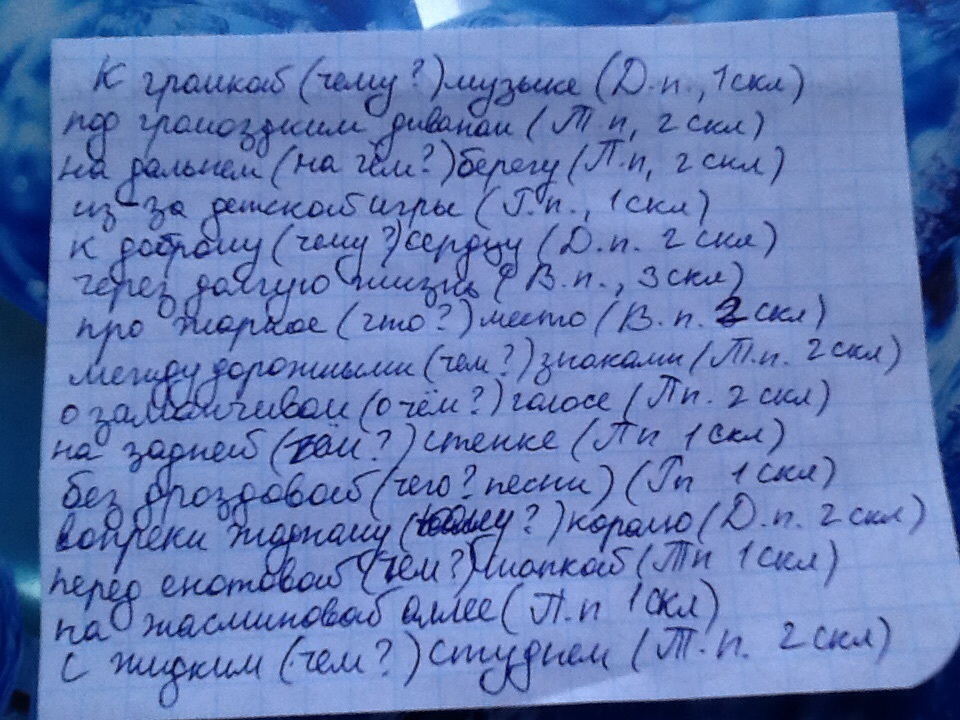 К громкой (чему?) музыке (Д.п., 1скл)
под громоздким диваном (Т.п, 2 скл)
на дальнем (на чём?) берегу (П.п, 2 скл)
из-за детской игры (Г.п., 1скл)
к доброму (чему?) сердцу (Д.п. 2 скл)
через долгую жизнь (В.п., 3скл)
про жаркое (что?) место (В.п. 2скл)
между дорожными (чем?) знаками (Т.п. 2скл)
о заманчивом (о чём?) голосе (Пп. 2 скл)
на задней (чём?) стенке (Пп 1скл)
без дроздовой (чего? песни) (Гп 1скл)
вопреки жадному (кому?) королю (Д.п. 2скл)
перед енотовой (чем?) шапкой (Тп 1скл)
на жасминовой аллее (П.п 1скл)
с жидким (чем?) студнем (Т.п. 2скл)